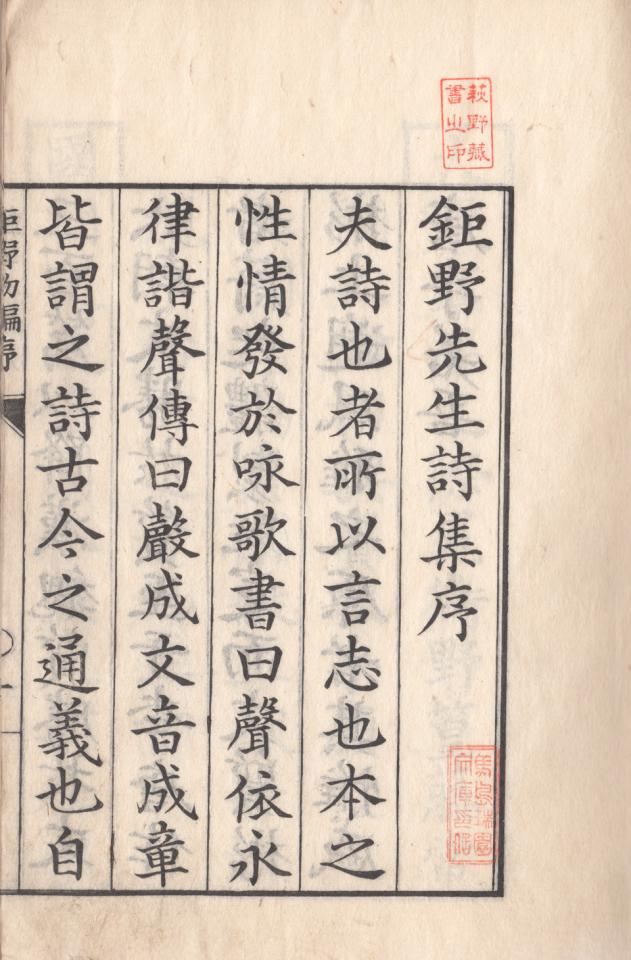 萩野蔵
書之印
鉅野先生詩集序
夫詩也者所以言志也本之
性情發於咏歌書曰聲依永
律諧聲傳曰聲成文音成章
皆謂之詩古今之通義也自
鉅野初編序
一